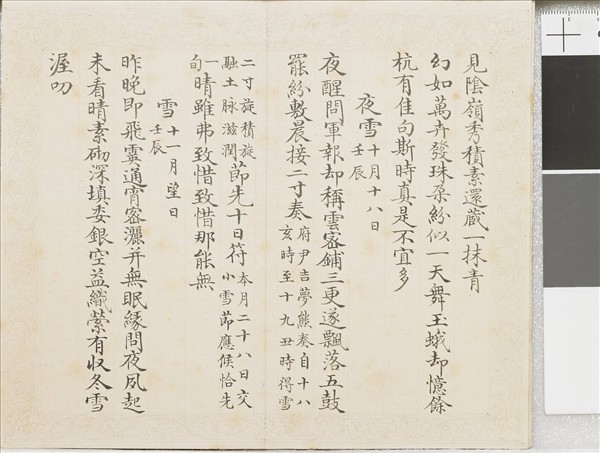 見陰嶺秀積素還藏一抹青
幻如萬卉發珠朶紛似一天舞玉蛾却憶餘
杭有佳句斯時真是不宜多
夜雪 十月十八日 壬辰
夜醒問軍報却稱雲密鋪三更遂飄落五鼓
罷紛敷晨接二寸奏 府尹吉夢熊奏自十八 亥時至十九丑時得雪
二寸旋積旋 融土脉滋潤 節先十日符 本月二十八日交 小雪節應候恰先
一旬 晴雖弗致惜致惜那能無
雪 十一月望日 壬辰
昨晚即飛霙通宵密灑并無眠緣問夜夙起
未看晴素砌深填委銀空益織縈有収冬雪
渥叨